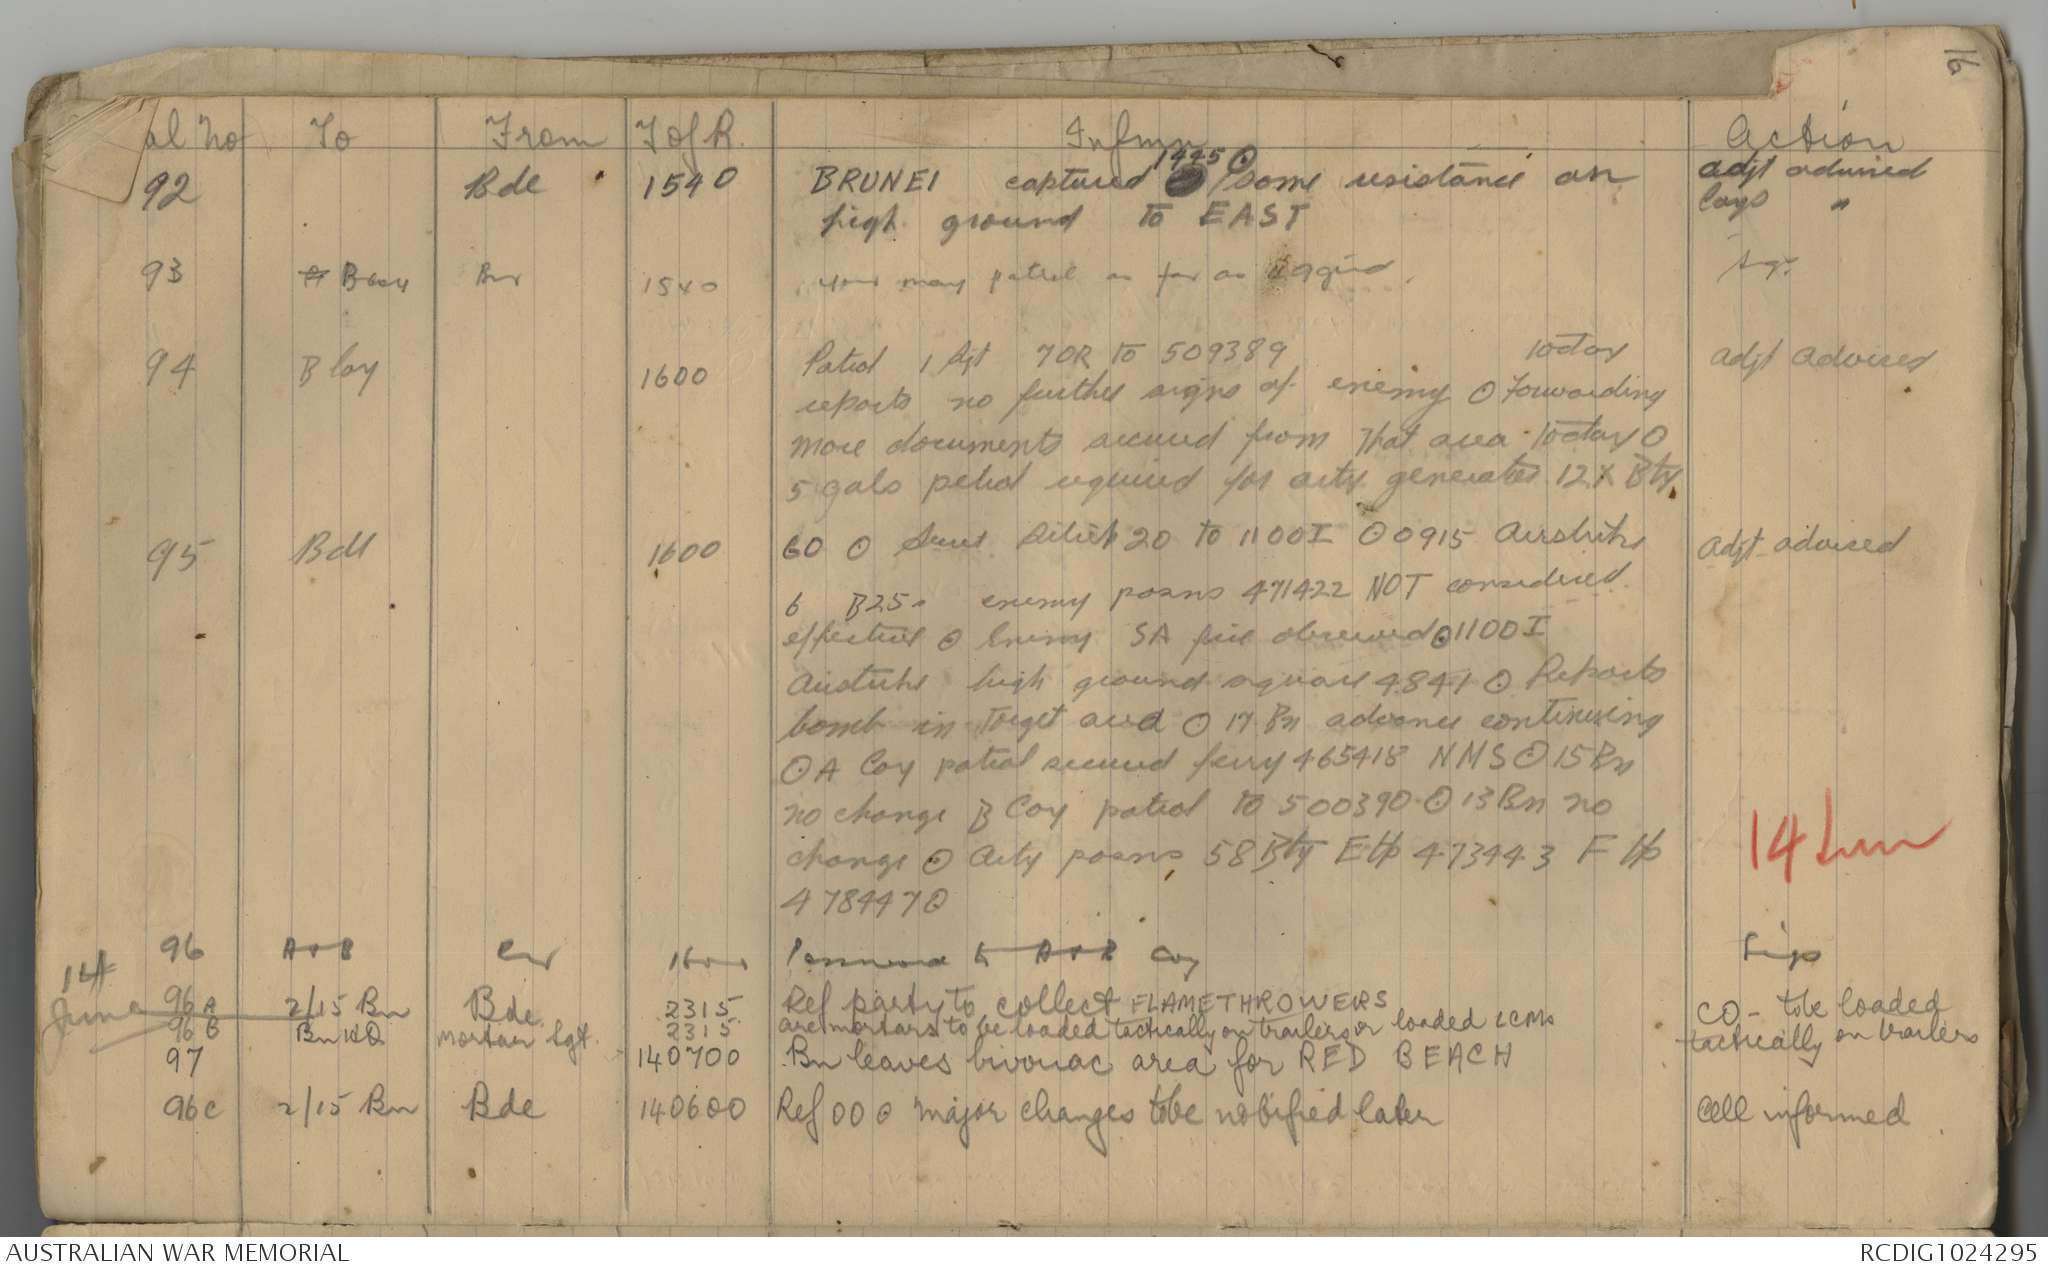 16
al No To From T of R. Infmn Action
92 Bde 1540 BRUNEI captured 1445 ⊙ some resistance on adjt advised
high ground to EAST Coys "
93 B Coy Bn 1540 your may patrol as far as 49 grid. Sigs
94 B Coy 1600 Patrol 1 Sgt 7OR to 509389 today adjt advised
reports no further signs of enemy ⊙ Forwarding
more documents secured from that area today ⊙
5 gals petrol required for arty generator 12X Bty
95 Bde 1600 60 ⊙ Sitrep 20 to 1100I ⊙ 0915 Airstrike adjt advised
6 B25s enemy posns 471422 NOT considered
effective ⊙ Enemy SA fire observed ⊙ 1100I
Airstrike high ground square 4841 ⊙ Reports
bomb in target area ⊙ 17 Bn advance continuing
⊙ A Coy patrol secured ferry 465418 NMS ⊙ 15 Bn
no change B Coy patrol to 500390 ⊙ 13 Bn no
change ⊙ Arty posns 58 Bty E Tp 473443 F Tp
478447 ⊙
14 Jun
96 A + B Bn 1600 Password to A + B Coy Sigs
14 June
96A 2/15 Bn Bde 2315 Ref party to collect FLAMETHROWERS
96B Bn HQ Mortar Sgt. 2315 are mortars to be loaded tactically on trailers or loaded LCMs CO - to be loaded tactically on trailers
97 140700 Bn leaves bivouac area for RED BEACH
96C 2/15 Bn Bde 140600 Ref OO ⊙ Major changes to be notified later Cell informed
AUSTRALIAN WAR MEMORIAL RCDIG1024295